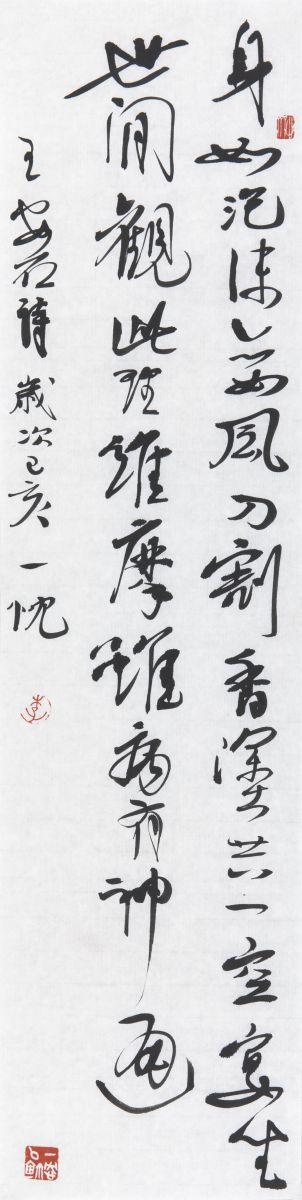 身如泡沫亦如風刀割香塗共一空宴坐
世間觀此理維摩雖病有神通
王安石詩 歲次己亥 一忱
李